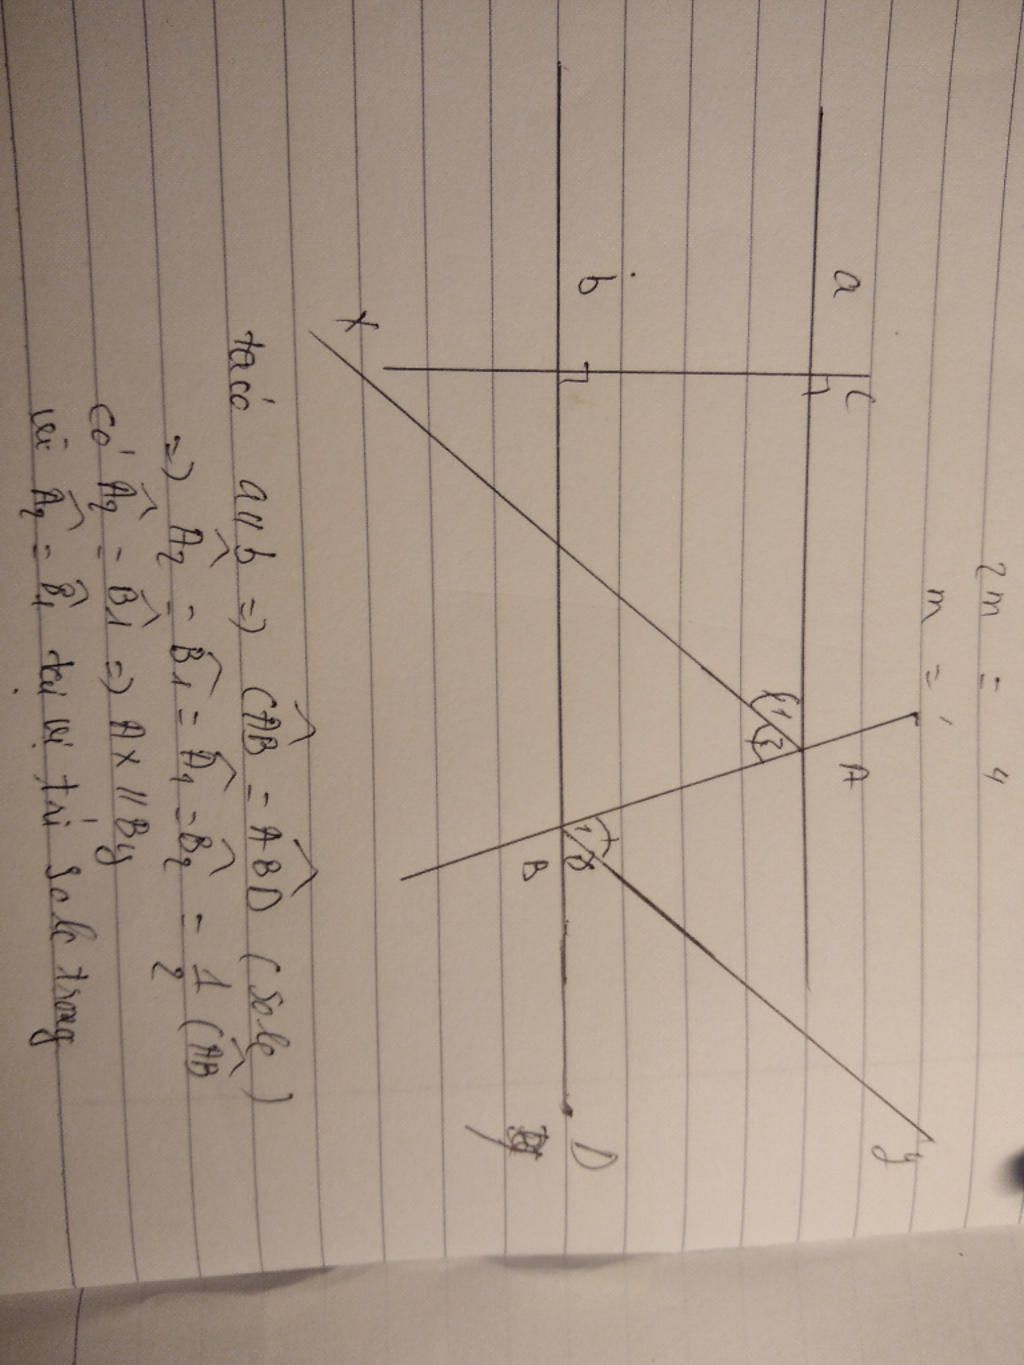 2m = 4
m =
a
C
A
y
b
B
D
x
1
2
1
2
ta có a // b => CAB̂ = ABD̂ (sole)
=> Â2 = B̂1 = Â1 = B̂2 = 1/2 CAB̂
Có Â2 = B̂1 => Ax // By
vì Â2 = B̂1 tại vị trí sole trong